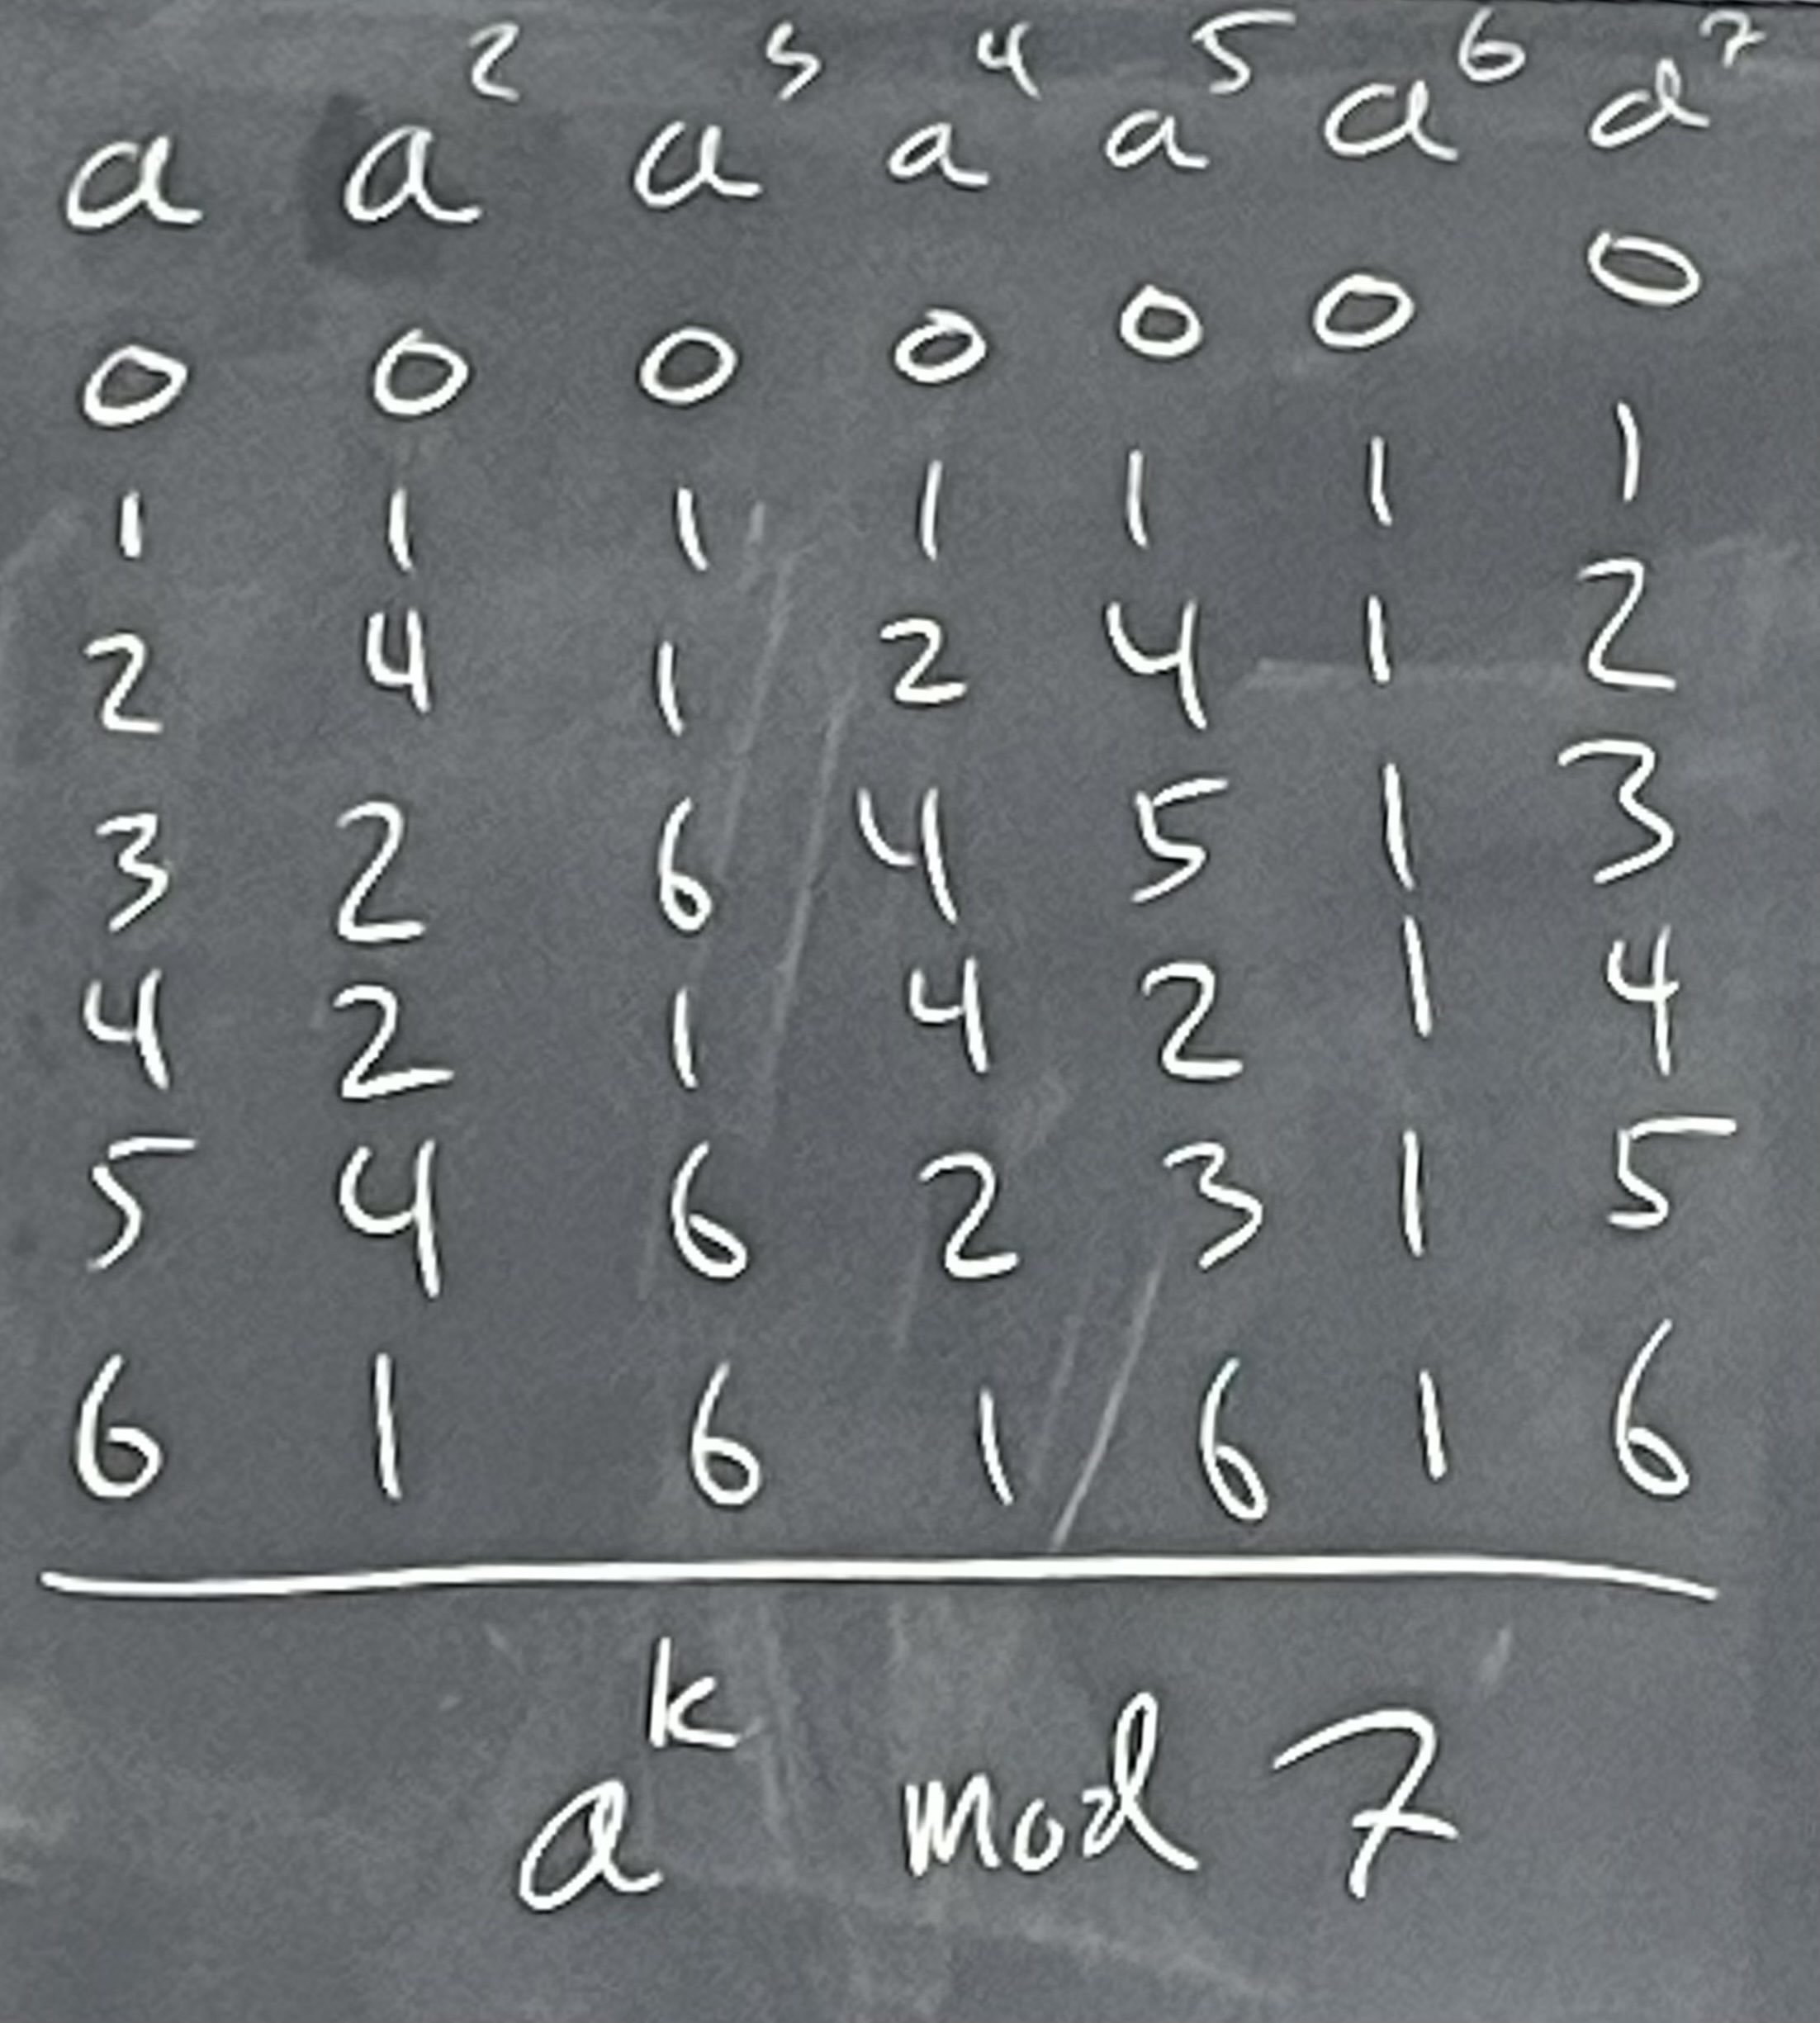 a a² a³ a⁴ a⁵ a⁶ a⁷
0 0 0 0 0 0 0
1 1 1 1 1 1 1
2 4 1 2 4 1 2
3 2 6 4 5 1 3
4 2 1 4 2 1 4
5 4 6 2 3 1 5
6 1 6 1 6 1 6
aᵏ mod 7